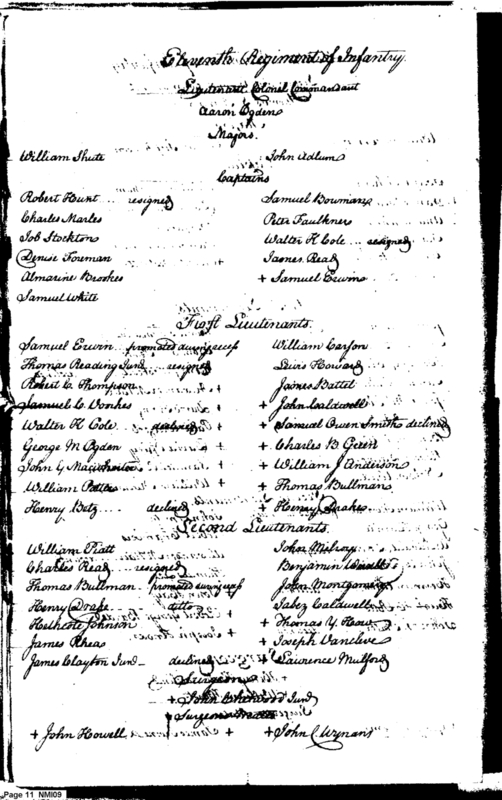 Eleventh Regiment of Infantry.
Lieutenant Colonel Commandant
Aaron Ogden
Majors.
William Shute John Adlum
Captains
Robert Hunt ... resigned Samuel Bowman
Charles Marles Peter Faulkner
Job Stockton Walter K Cole .. resigned
Denise Foreman James Read
Almarine Brookes + Samuel Erwin
Samuel White
First Lieutenants.
Samuel Erwin promoted during recess William Carson
Thomas Reading Jund .. resigned Lewis Howard
Robert C. Thompson James Battel
Samuel C. Voorhes + John Caldwell
Walter K Cole ... declined + Samuel Owen Smith declined
George M Ogden + Charles B Green
John G Mackwhorter + William J Anderson
William Potter + Thomas Bullman
Henry Betz .... declined + Henry Drake.
Second Lieutenants.
William Piatt John
Charles Read ... resigned Benjamin
Thomas Bullman promoted during recess John Montgomery
Henry Drake ... ditto Jabez Caldwell
Hethcote Johnson + Thomas Y How
James Rhea + Joseph Vancleve
James Clayton Jund - declined + Lawrence Mulford
Surgeon
+ John Chetwood Jund
Surgeons Mates
+ John Howell + John C Wynans
Page 11 NMI09